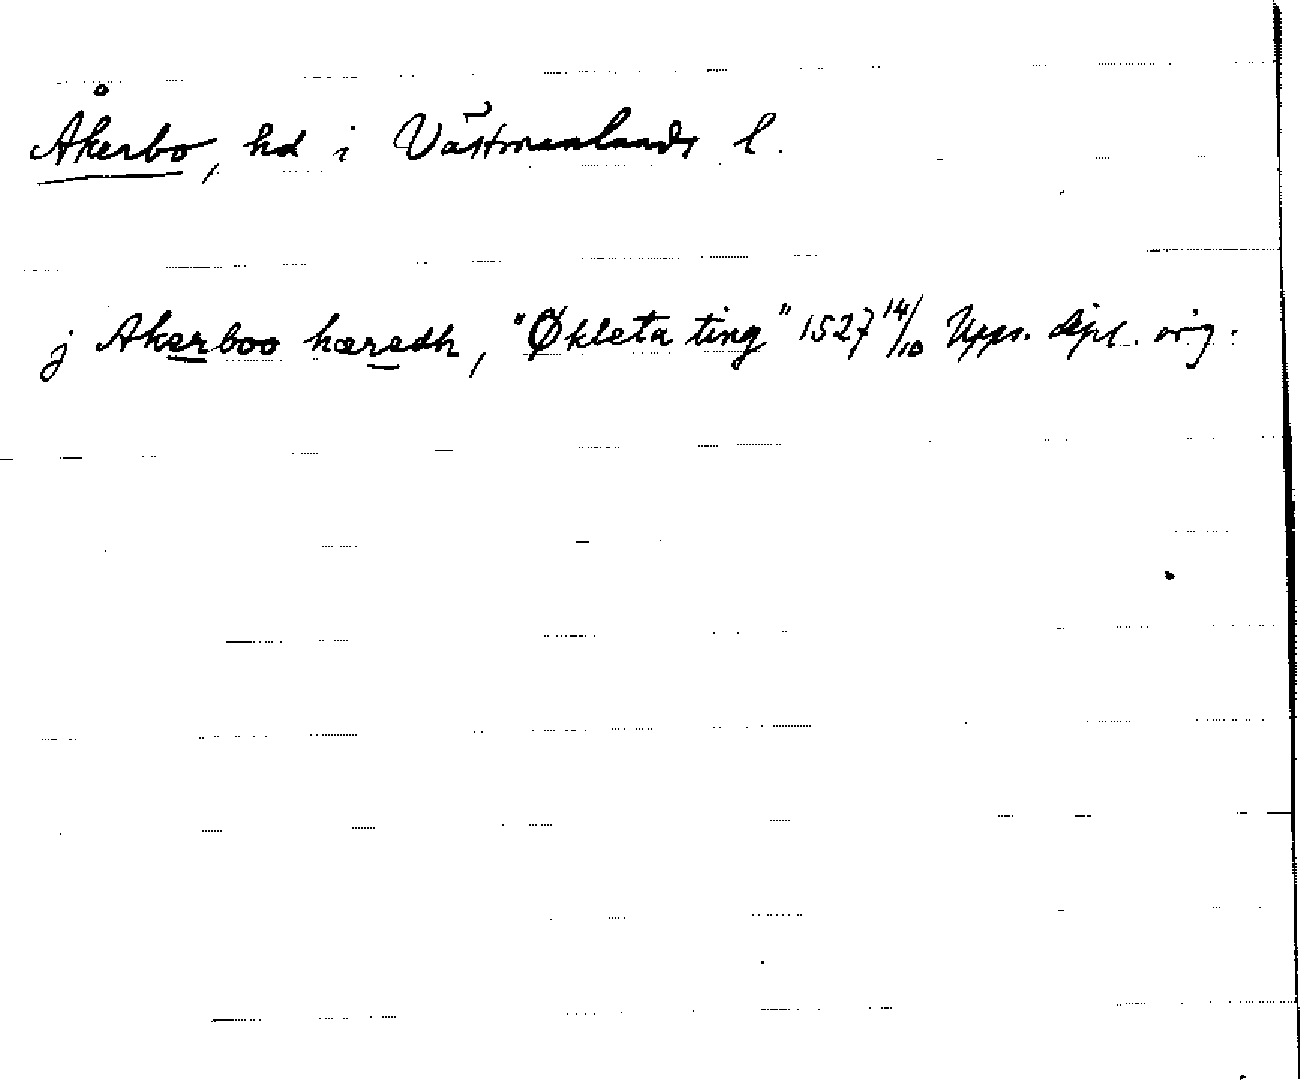 Åkerbo, hd i Västmanlands l.
j Akerboo hæredh, "Økleta ting" 1527 14/10 Upps. dipl. orig.